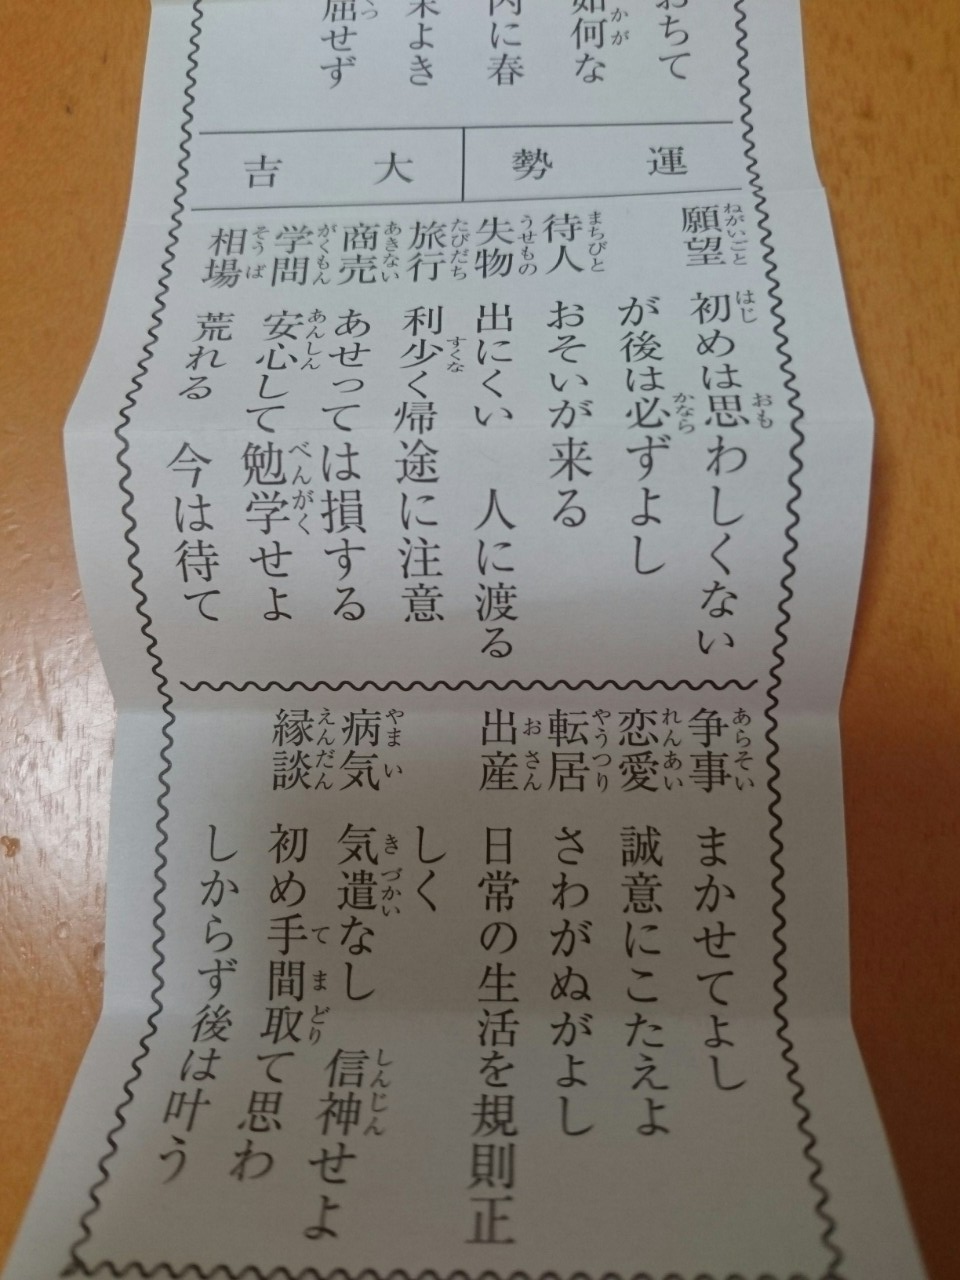 おちて
如何な
内に春
来よき
屈せず
運勢 大吉
願望 初めは思わしくない
が後は必ずよし
待人 おそいが来る
失物 出にくい 人に渡る
旅行 利少く帰途に注意
商売 あせっては損する
学問 安心して勉学せよ
相場 荒れる 今は待て
争事 まかせてよし
恋愛 誠意にこたえよ
転居 さわがぬがよし
出産 日常の生活を規則正
しく
病気 気遣なし 信神せよ
縁談 初め手間取て思わ
しからず後は叶う